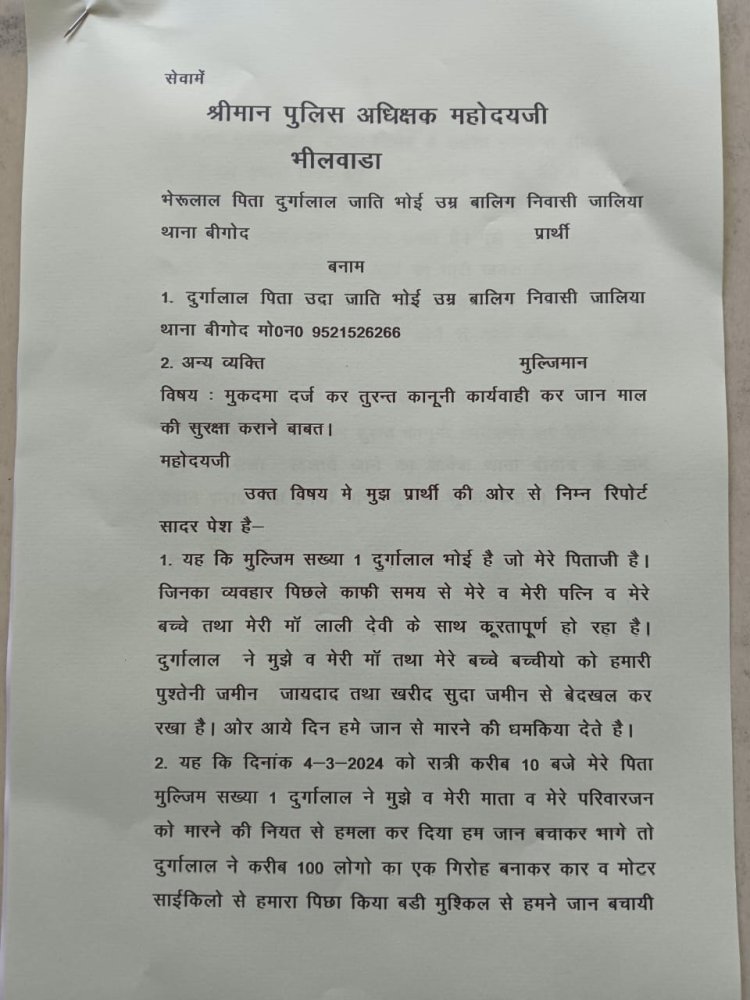 सेवामें
श्रीमान पुलिस अधिक्षक महोदयजी
भीलवाडा
भेरूलाल पिता दुर्गालाल जाति भोई उम्र बालिग निवासी जालिया
थाना बीगोद प्रार्थी
बनाम
1. दुर्गालाल पिता उदा जाति भोई उम्र बालिग निवासी जालिया
थाना बीगोद मो0न0 9521526266
2. अन्य व्यक्ति मुल्जिमान
विषय : मुकदमा दर्ज कर तुरन्त कानूनी कार्यवाही कर जान माल
की सुरक्षा कराने बाबत।
महोदयजी
उक्त विषय मे मुझ प्रार्थी की ओर से निम्न रिपोर्ट
सादर पेश है–
1. यह कि मुल्जिम सख्या 1 दुर्गालाल भोई है जो मेरे पिताजी है।
जिनका व्यवहार पिछले काफी समय से मेरे व मेरी पत्नि व मेरे
बच्चे तथा मेरी मॉ लाली देवी के साथ कूरतापूर्ण हो रहा है।
दुर्गालाल ने मुझे व मेरी मॉ तथा मेरे बच्चे बच्चीयो को हमारी
पुश्तेनी जमीन जायदाद तथा खरीद सुदा जमीन से बेदखल कर
रखा है। ओर आये दिन हमे जान से मारने की धमकिया देते है।
2. यह कि दिनांक 4–3–2024 को रात्री करीब 10 बजे मेरे पिता
मुल्जिम सख्या 1 दुर्गालाल ने मुझे व मेरी माता व मेरे परिवारजन
को मारने की नियत से हमला कर दिया हम जान बचाकर भागे तो
दुर्गालाल ने करीब 100 लोगो का एक गिरोह बनाकर कार व मोटर
साईकिलो से हमारा पिछा किया बडी मुश्किल से हमने जान बचायी